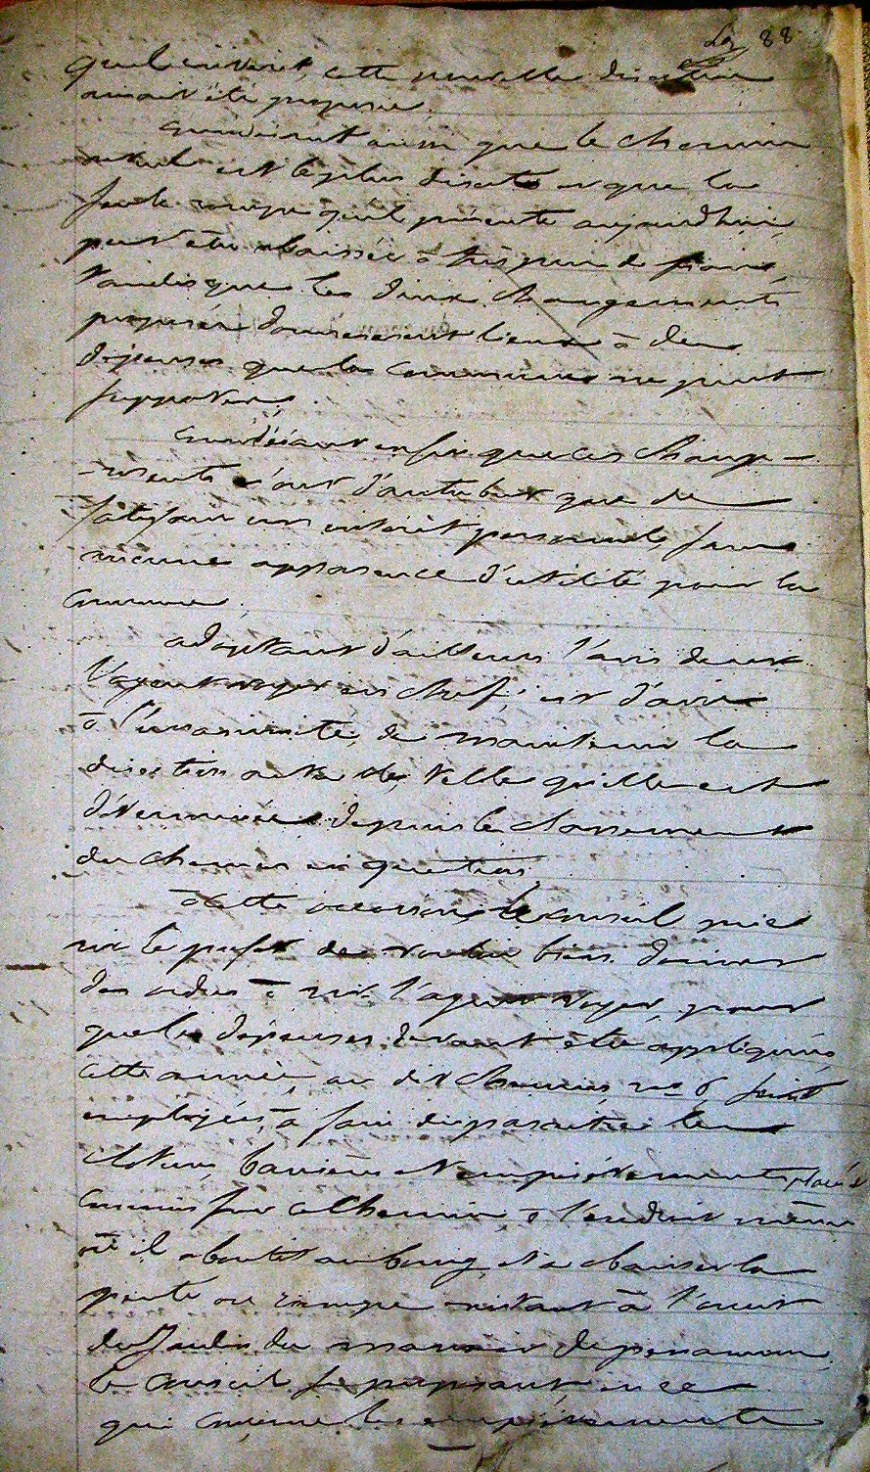 88
cette nouvelle direction
aurait été proposée
Considérant aussi que le chemin
actuel est le plus direct et que la
seule rampe qu'il présente aujourd'hui,
peut être abaissée à très peu de frais,
tandis que les deux changements
proposés donneraient lieu à des
dépenses que la commune ne peut
supporter,
Considérant enfin que ces change-
-ments n'ont d'autre but que de
satisfaire un intérêt personnel, sans
aucune apparence d'utilité pour la
commune.
adoptant d'ailleurs l'avis de
l'agent voyer en chef, est d'avis
à l'unanimité, de maintenir la
direction actuelle, telle qu'elle est
déterminée depuis le classement
du chemin en question,
à cette occasion, le conseil prie
mr le préfet de vouloir bien donner
des ordres à mr l'agent voyer, pour
que les dépenses devant être appliquées
cette année, au dit chemin, no 6, soient
employées, à faire disparaître les
clotures, barrières et empiètements placés
commis sur ce chemin, à l'endroit même
où il aboutit au bourg, et à abaisser la
pente ou rampe existant à l'ouest
du jardin du manoir de
le conseil se proposant, en ce
qui concerne les empiètements